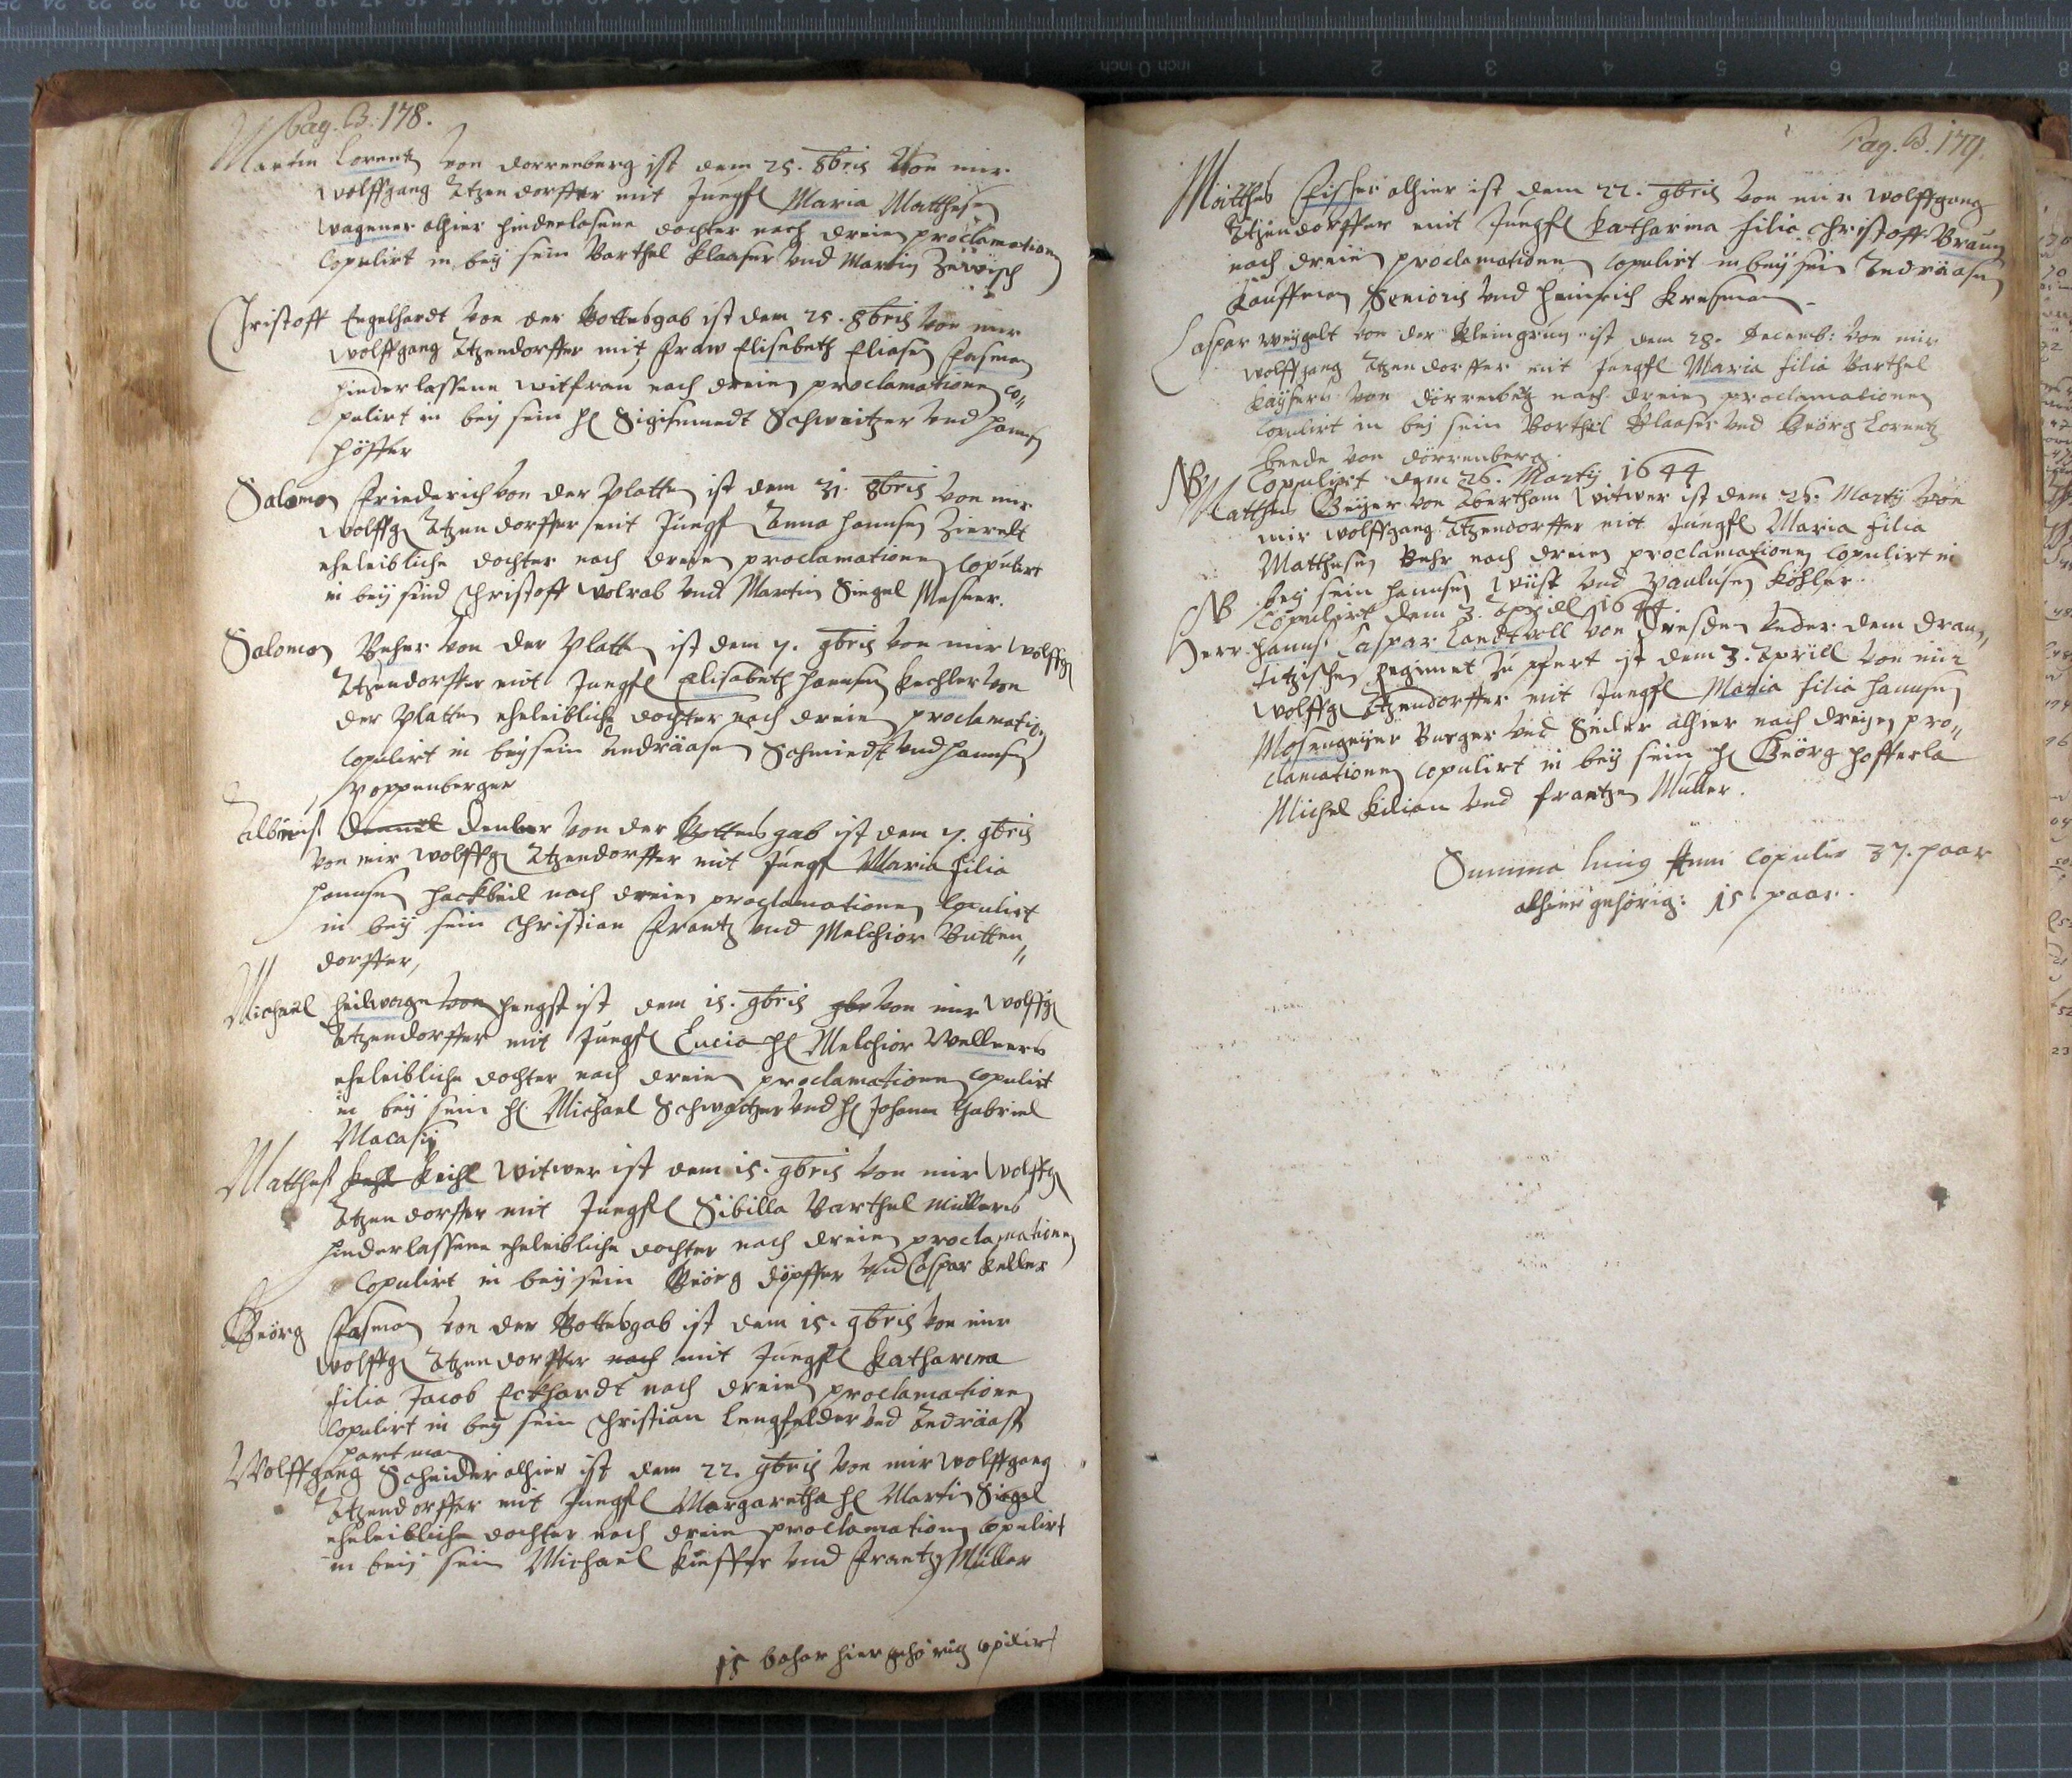 Pag. B. 178.
Martin Lorentz von dorrenberg ist dem 25. 8bris Von mir
Wolffgang Atzendorffer mit Jungfl Maria Matthesen
Wagener alhier hinderlasene dochter nach dreien proclamationen
Copulirt in bey sein Barthel Klaaser Vnd Martin
Christoff Engelhardt Von der Gottesgab ist dem 25. 8bris Von mir
Wolffgang Atzendorffer mit Fraw Elisebeth Eliasen Fasman
hinderlassene witfrau nach dreien proclamationen co„
pulirt in bey sein H Sigisemundt Schweitzer Vnd Hansen
Höffer
Salomon Friederich Von der Platten ist dem 31. 8bris Von mir
Wolffg Atzendorffer mit Jungf Anna Hannsen Zierelt
eheleibliche dochter nach dreien proclamationen Copulirt
in bey sind Christoff Wolrab Vnd Martin Siegel Mesner.
Salomon Beher Von der Platten ist dem 7. 9bris Von mir Wolffg
Atzendorffer mit Jungfl Elisabeth Hannsen Kechler Von
der Platten eheleibliche dochter nach dreien proclamation
Copulirt in bey sein Andräasen Schmiedt Vnd Hannsen
Poppenberger
Albinus Denler Von der Gottesgab ist dem 7. 9bris
Von mir Wolffg Atzendorffer mit Jungf Maria filia
Hannsen Hackbeil nach dreien proclamationen Copulirt
in bey sein Christian Frantz Vnd Melchior Butten„
dorffer,
Michael Heilwagn von Hengst ist dem 15. 9bris Von mir Wolffg
Atzendorffer mit Jungfl Lucia H Melchior Wellners
eheleibliche dochter nach dreien proclamationen Copulirt
in bey sein H Michael Schweitzer Vnd H Johann Gabriel
Macasij
Matthes Kehl Keihl Witwer ist dem 15. 9bris Von mir Wolffg
Atzendorffer mit Jungfl Sibilla Barthel Müllers
hinderlassene eheleibliche dochter nach dreien proclamationen
Copulirt in bey sein Geörg Döpffer Vnd Caspar Keller
Geörg Fasman Von der Gottesgab ist dem 15. 9bris Von mir
Wolffg Atzendorffer nach mit Jungfl Katharina
filia Jacob Eckhardt nach dreien proclamationen
Copulirt in bey sein Christian Lengfelder Vnd Andräass
Hartman
Wolffgang Schneider alhier ist dem 22. 9bris Von mir Wolffgang
Atzendorffer mit Jungfl Margaretha H Martin Siegel
eheleibliche dochter nach dreien proclamationen Copulirt
in bey sein Michael Kieffer Vnd Frantz Müller
15 bahar hier gehörig Copulirt
Pag. B. 179.
Matthes Fischer alhier ist dem 22. 9bris Von mir Wolffgang
Atzendorffer mit Jungfl Katharina filia Christoff Braun
nach dreien proclamationen Copulirt in bey sein Andräasen
Kauffman Senioris Vnd Heinrich Kresman
Caspar Weygelt Von der Kleingrün ist dem 28. Decemb: Von mir
Wolffgang Atzendorffer mit Jungfl Maria filia Barthel
Kaysers Von dörrenberg nach dreien proclamationen
Copulirt in bey sein Barthel Klaaser Vnd Geörg Lorentz
beede Von dörrenberg.
NB Copulirt dem 26. Martij 1644
Matthes Geyer Von Abertham Witwer ist dem 26. Martij Von
mir Wolffgang Atzendorffer mit Jungfl Maria filia
Matthesen Behr nach dreien proclamationen Copulirt in
bey sein Hannsen Wüst Vnd Paulusen Köhler.
NB Copulirt dem 3. Aprill 1644.
Herr Hanns Caspar Landtvoll Von Dresden Vnder dem Drau„
litzischen Regiment zu Pfert ist dem 3. Aprill Von mir
Wolffg Atzendorffer mit Jungfl Maria filia Hannsen
Mosengeyer Burger Vnd Seiler alhier nach dreyen pro„
clamationen Copulirt in bey sein H Geörg Hofferla
Michel Kilian Vnd Frantzen Müller.
Summa huius Anni Copulir 37. paar
alhier gehörig: 15 paar.